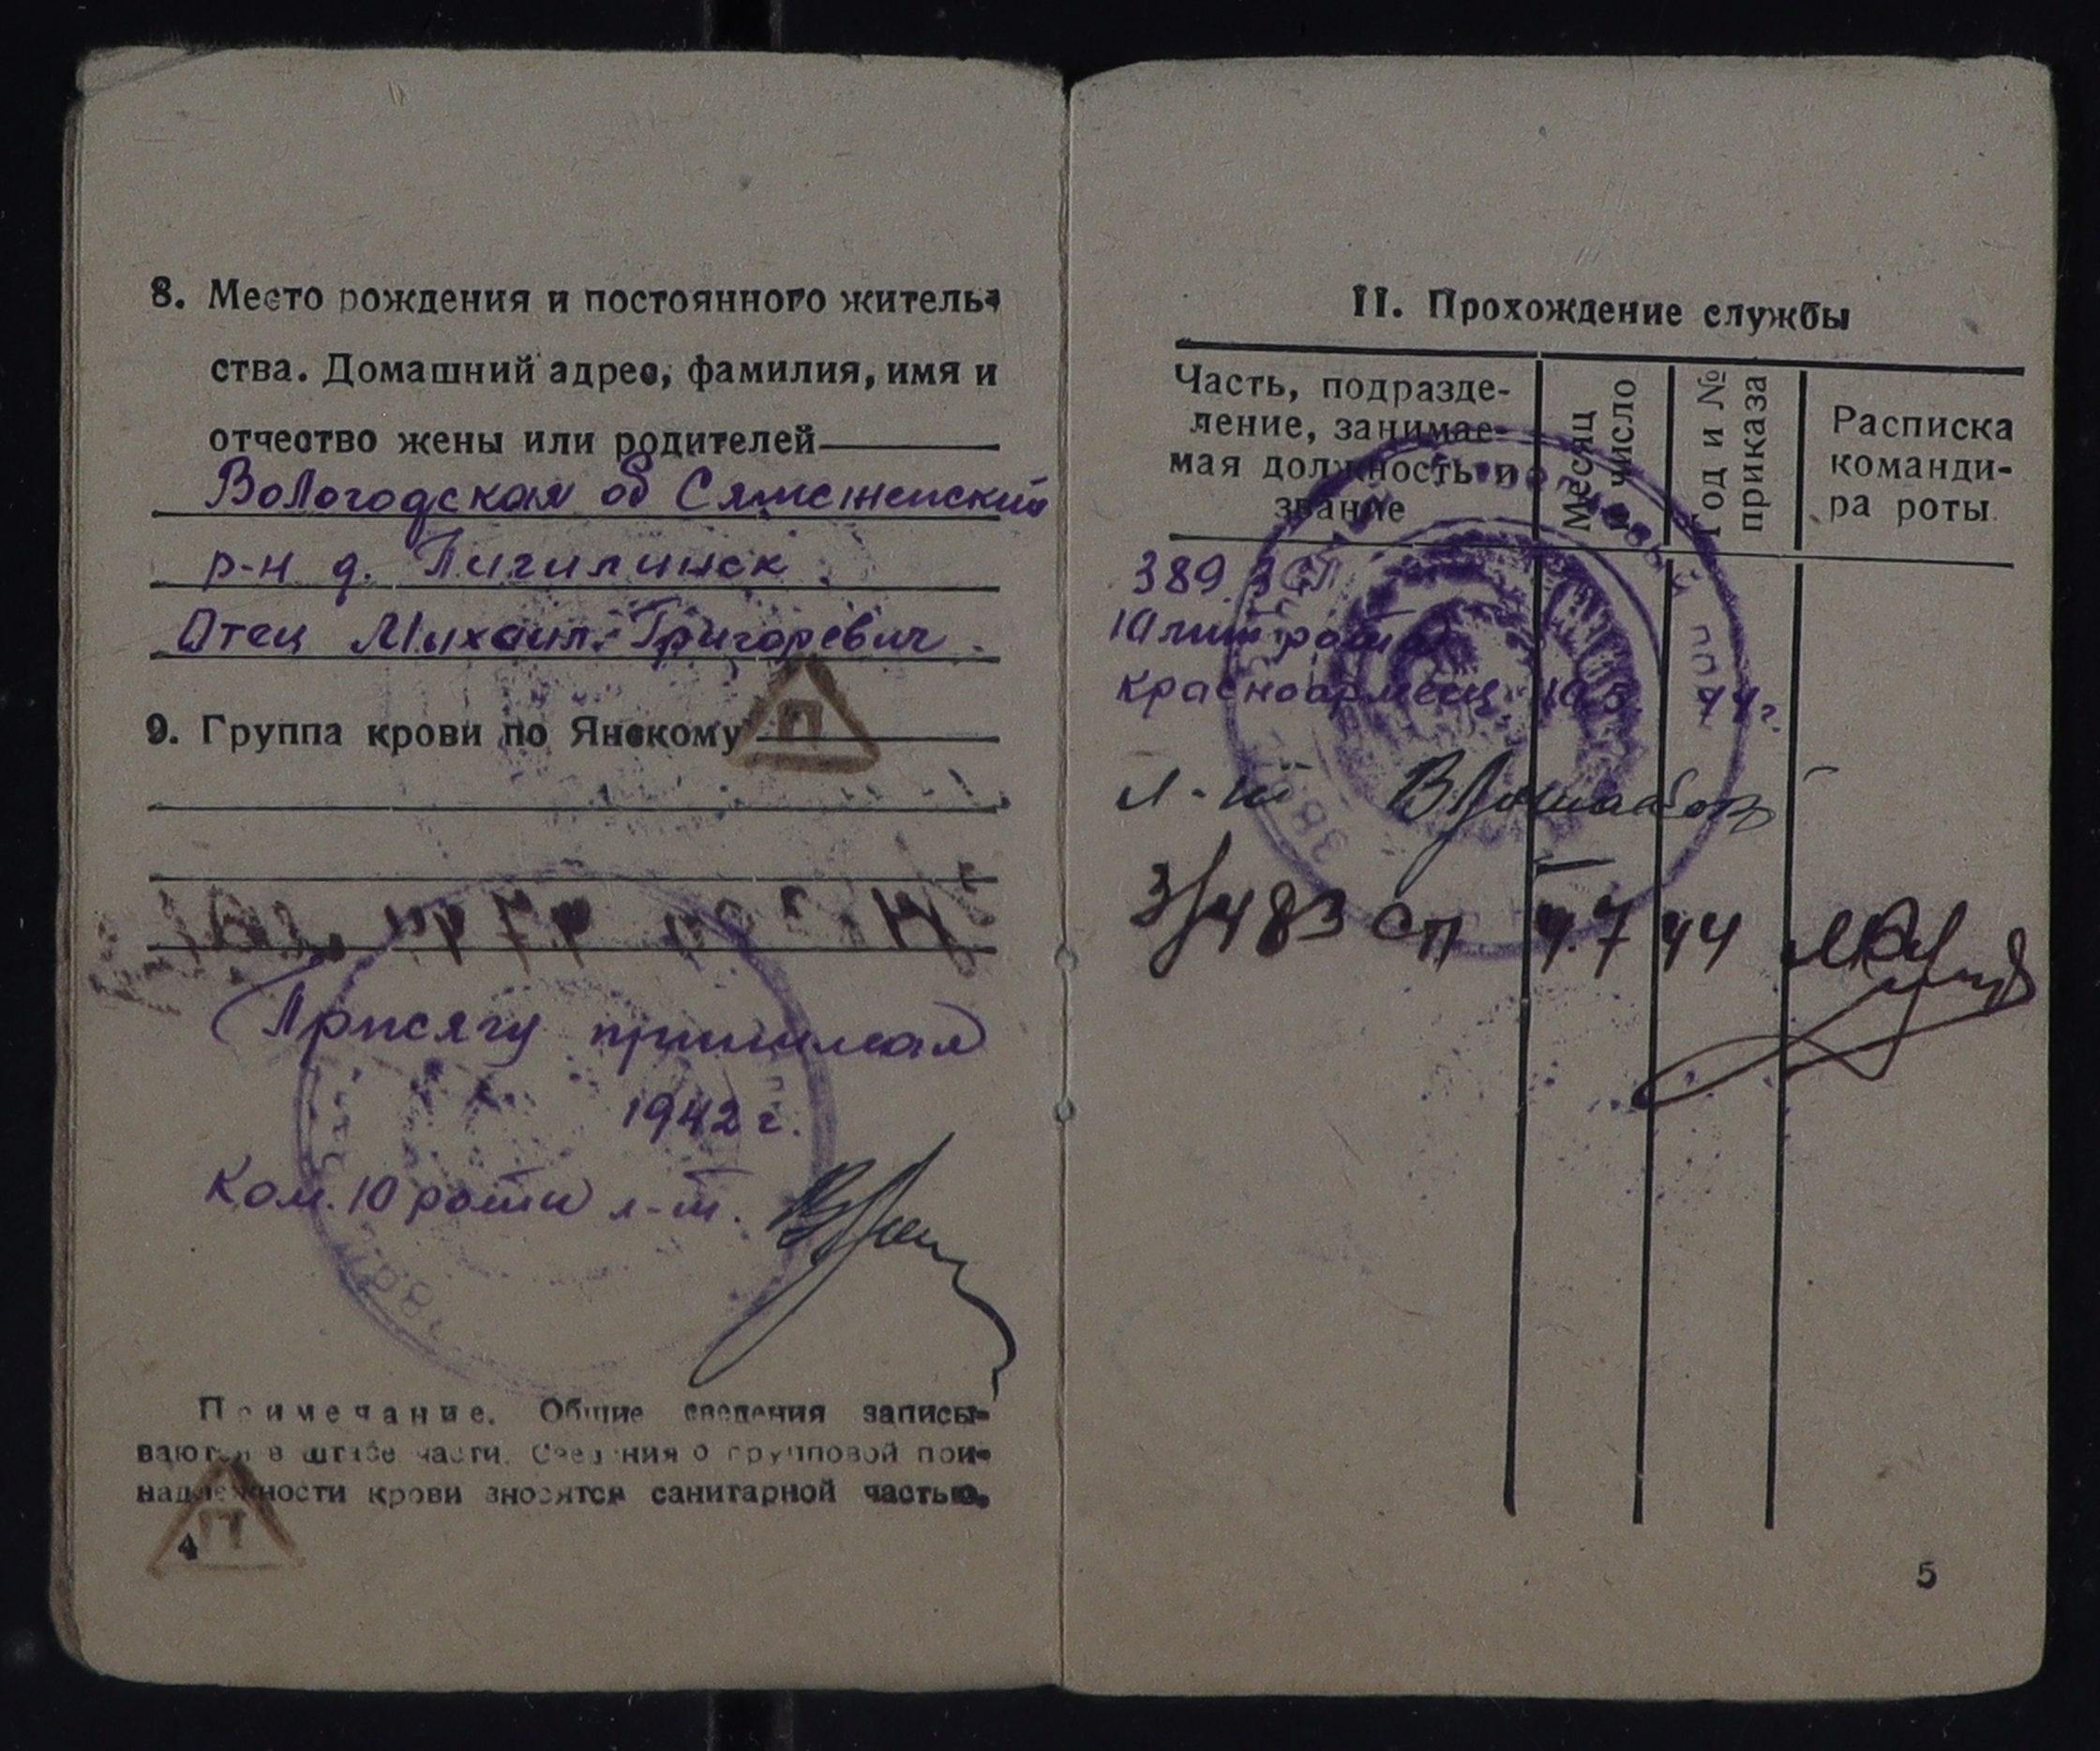 8. Место рождения и постоянного житель-
ства. Домашний адрес, фамилия, имя и
отчество жены или родителей
Вологодская об Сямженский
р-н д. Пигилинск
Отец Михаил Григоревич.
9. Группа крови по Янскому П
Присягу принимал
1942 г.
Ком. 10 роти л-т.
Примечание. Общие сведения записы-
ваются в штабе части. Сведения о групповой при-
надлежности крови вносятся санитарной частью.
П
4
II. Прохождение службы
Часть, подразде-
ление, занимае-
мая должность и
звание
Месяц
и число
Год и №
приказа
Расписка
команди-
ра роты.
389 ЗСП
10 рота
красноармеец 10.3. 44г.
л-т
3/483 СП 4.7 44
5